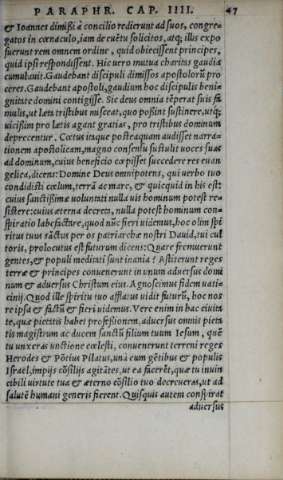 PARAPHR. CAP. IIII. 47
& Ioannes dimißi à concilio redierunt ad suos, congre-
gatos in cœnaculo, iam de euẽtu solicitos, atq; illis expo
suerunt rem omnem ordine, quid obiecissent principes,
quid ipsi respondissent. Hic uero mutua charitas gaudia
cumulauit. Gaudebant discipuli dimissos apostolorũ pro
ceres. Gaudebant apostoli, gaudium hoc discipulis beni-
gnitate domini contigisse. Sic deus omnia tẽperat suis fa
mulis, ut læta tristibus misceat, quo possint sustinere, utq;
uicißim pro lætis agant gratias, pro tristibus dominum
deprecentur. Cœtus itaque posteaquam audisset narra-
tionem apostolicam, magno consensu sustulit uoces suas
ad dominum, cuius beneficio cœpisset succedere res euan
gelica, dicens: Domine Deus omnipotens, qui uerbo tuo
condidisti cœlum, terrã ac mare, & quicquid in his est:
cuius sanctißimæ uoluntati nulla uis hominum potest re-
sistere: cuius æterna decreta, nulla potest hominum con-
spiratio labefactare, quod nũc fieri uidemus, hoc olim spi
ritus tuus sanctus per os patriarchæ nostri Dauid, tui cul
toris, prolocutus est futurum dicens: Quare fremuerunt
gentes, & populi meditati sunt inania? Astiterunt reges
terræ & principes conuenerunt in unum aduersus domi
num & aduersus Christum eius. Agnoscimus fidem uati-
cinij. Quod ille spiritu tuo afflatus uidit futurũ, hoc nos
re ipsa & factũ & fieri uidemus. Vere enim in hac ciuita
te, quæ pietatis habet professionem, aduersus omnis pieta
tis magistrum ac ducem sanctũ filium tuum Iesum, quẽ
tu unxeras unctione cœlesti, conuenerunt terreni reges
Herodes & Põtius Pilatus, unà cum gẽtibus & populis
Israel, impijs cõsilijs agitãtes, ut ea facerẽt, quæ tu inuin
cibili uirtute tua & æterno cõsilio tuo decreueras, ut ad
salutẽ humani generis fierent. Quisquis autem conspirat
aduersus